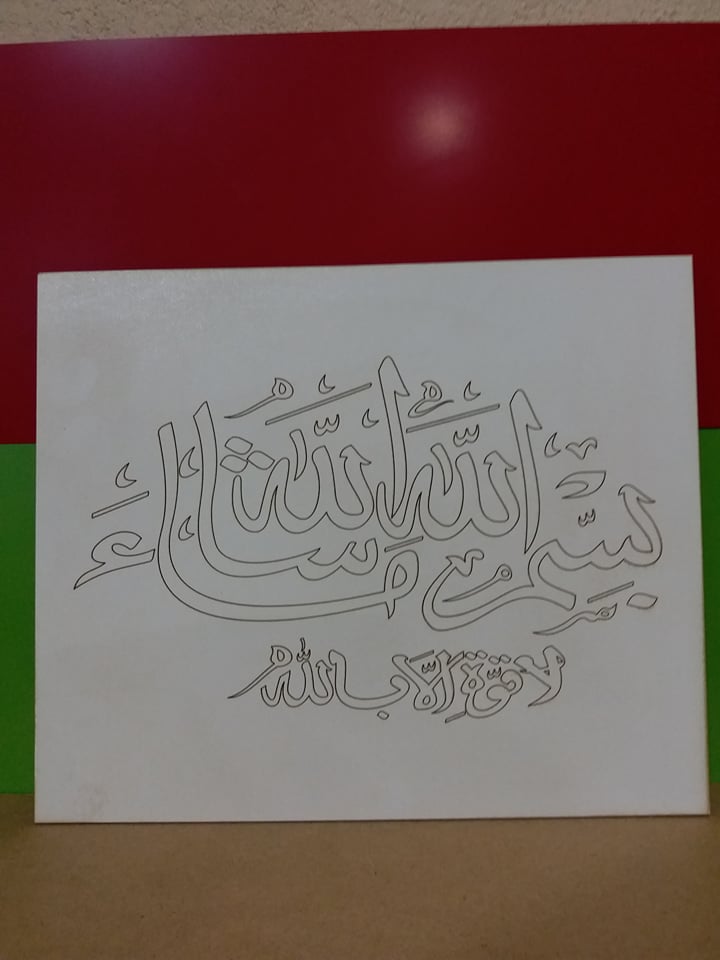 بسم الله ما شاء الله
لا قوة إلا بالله